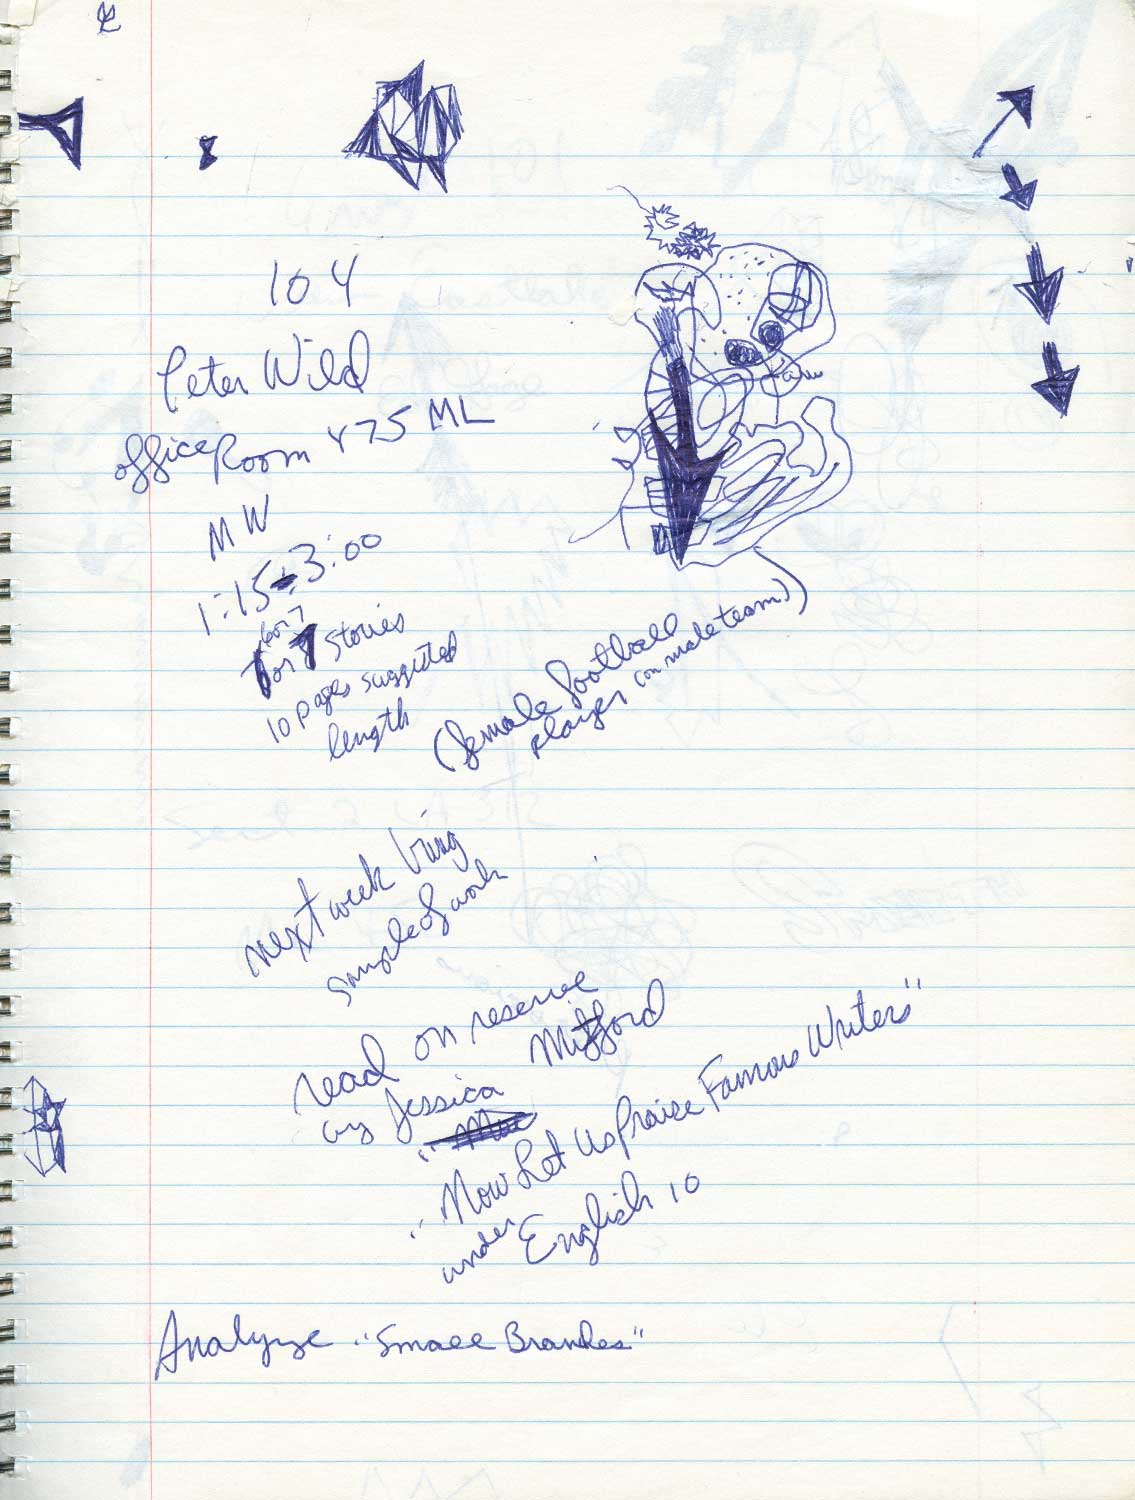 104
Peter Wild
office Room 475 ML
MW
1:15-3:00
6 or 7
for 7 stories
10 pages suggested
length
(female football
player (on male team))
next week bring
sample of work
read on reserve
by Jessica Mitford
"Now Let Us Praise Famous Writers"
under English 10
Analyze "Small